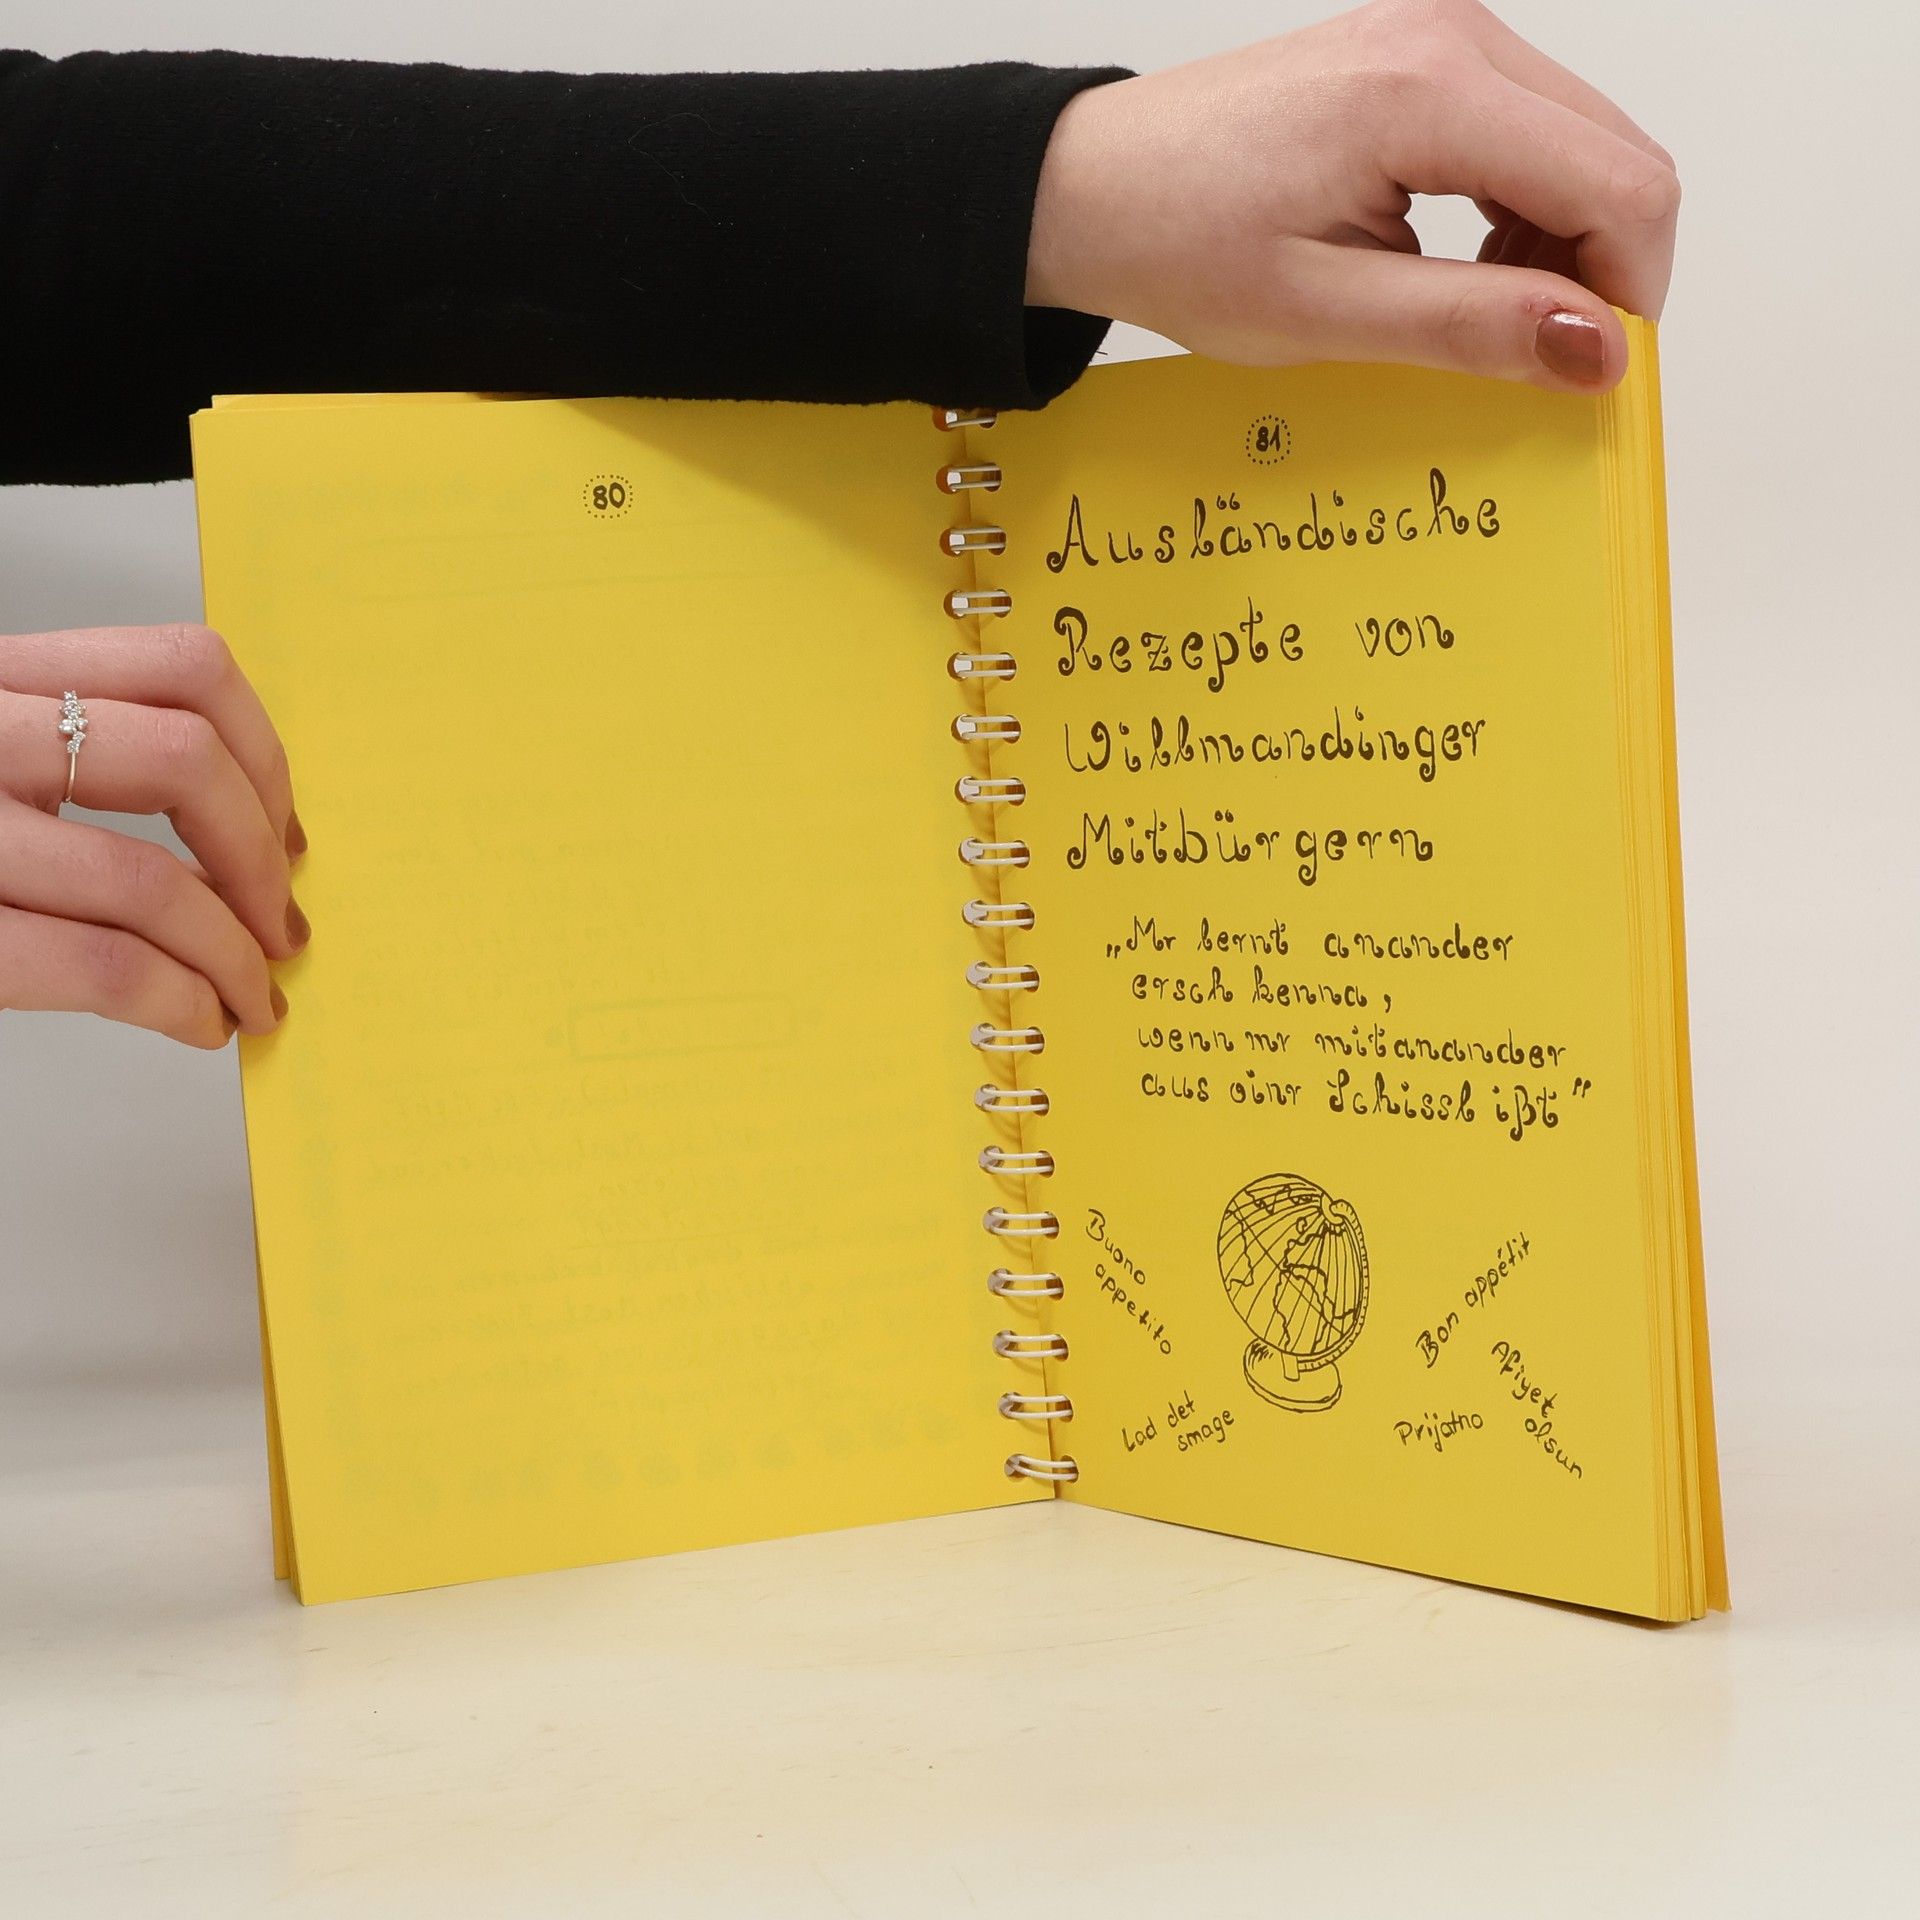 80
81
Ausländische
Rezepte von
Willmandinger
Mitbürgern
„Mr lernt ananander
ersch kenna,
wenn mr mitanander
aus oinr Schissl ißt"
Buono
appetito
Lad det
smage
Bon appétit
Afiyet
olsun
Prijatno